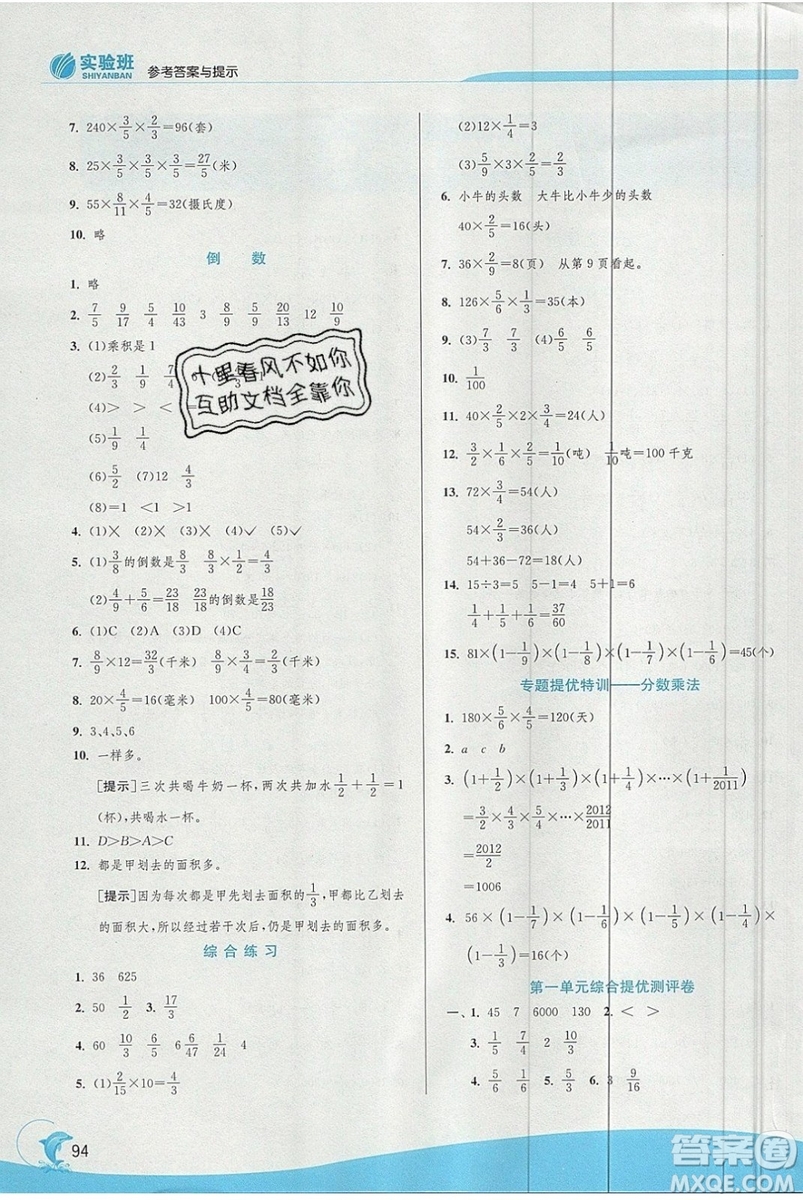 实验班
SHIYANBAN
参考答案与提示
7. 240×3/5×2/3=96(套)
8. 25×3/5×3/5×3/5=27/5(米)
9. 55×8/11×4/5=32(摄氏度)
10. 略
倒 数
1. 略
2. 7/5 9/17 5/4 10/43 3 8/9 5/9 20/13 12 10/9
3. (1)乘积是1
(2)2/3 1/4 1/2 7/
(4)> > < <
(5)1/9 1/4
(6)5/2 (7)12 4/3
(8)=1 <1 >1
4. (1)× (2)× (3)× (4)✓ (5)✓
5. (1)3/8的倒数是8/3 8/3×1/2=4/3
(2)4/9+5/6=23/18 23/18的倒数是18/23
6. (1)C (2)A (3)D (4)C
7. 8/9×12=32/3(千米) 8/9×3/4=2/3(千米)
8. 20×4/5=16(毫米) 100×4/5=80(毫米)
9. 3、4、5、6
10. 一样多。
[提示]三次共喝牛奶一杯,两次共加水1/2+1/2=1
(杯),共喝水一杯。
11. D>B>A>C
12. 都是甲划去的面积多。
[提示]因为每次都是甲先划去面积的1/3,甲都比乙划去
的面积大,所以若干次后,仍是甲划去的面积多。
综合练习
1. 36 625
2. 50 1/2 3. 17/3
4. 60 10/3 5/2 6 6/47 1/24 4
5. (1)2/15×10=4/3
(2)12×1/4=3
(3)5/9×3×2/5=2/3
6. 小牛的头数 大牛比小牛少的头数
40×2/5=16(头)
7. 36×2/9=8(页) 从第9页看起。
8. 126×5/6×1/3=35(本)
9. (3)7/3 7/3 6/5 6/5
10. 1/100
11. 40×2/5×2×3/4=24(人)
12. 3/2×1/6×2/5=1/10(吨) 1/10吨=100千克
13. 72×3/4=54(人)
54×2/3=36(人)
54+36-72=18(人)
14. 15÷3=5 5-1=4 5+1=6
1/4+1/5+1/6=37/60
15. 81×(1-1/9)×(1-1/8)×(1-1/7)×(1-1/6)=45(个)
专题提优特训——分数乘法
1. 180×5/6×4/5=120(天)
2. a c b
3. (1+1/2)×(1+1/3)×(1+1/4)×…×(1+1/2011)
=3/2×4/3×5/4×…×2012/2011
=2012/2
=1006
4. 56×(1-1/7)×(1-1/6)×(1-1/5)×(1-1/4)×
(1-1/3)=16(个)
第一单元综合提优测评卷
一、1. 45 7 6000 130 2. < >
3. 1/5 7/4 2 10/3
4. 5/6 1/6 5. 5/3 6. 3 9/16
94
十里春风不如你
互助文档全靠你
答案圈
MXQE.COM